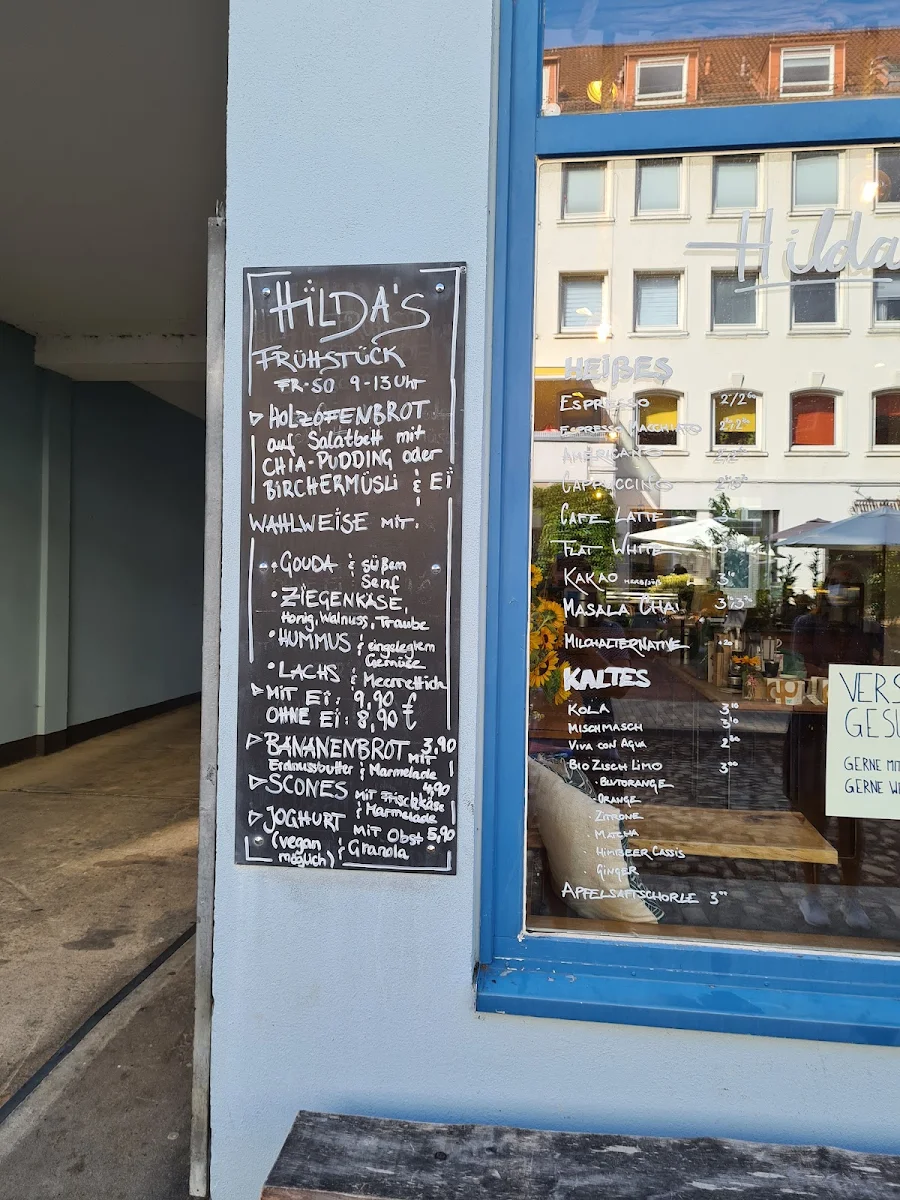 HILDA'S
FRÜHSTÜCK
FR-SO 9-13 Uhr
HOLZOFENBROT
auf Salatbett mit
CHIA-PUDDING oder
BIRCHERMÜSLI & EI
WAHLWEISE MIT:
GOUDA & süßem
Senf
ZIEGENKÄSE,
Honig, Walnuss, Traube
HUMMUS & eingelegtem
Gemüse
LACHS & Meerrettich
MIT EI: 9,90 €
OHNE EI: 8,90 €
BANANENBROT MIT 3,90
Erdnussbutter & Marmelade
SCONES MIT Frischkäse 4,90
& Marmelade
JOGHURT MIT Obst 5,90
(vegan möglich) & Granola
Hilda
HEIẞES
ESPRESSO
ESPRESSO MACCHIATO
AMERICANO
CAPPUCCINO
CAFE LATTE
FLAT WHITE
KAKAO
MASALA CHAI
MILCHALTERNATIVE
KALTES
KOLA
MISCHMASCH
VIVA CON AQUA
BIO ZISCH LIMO
· BLUTORANGE
· ORANGE
· ZITRONE
· MATCHA
· HIMBEER CASSIS
· GINGER
APFELSAFTSCHORLE
VERS
GESU
GERNE MIT
GERNE WE